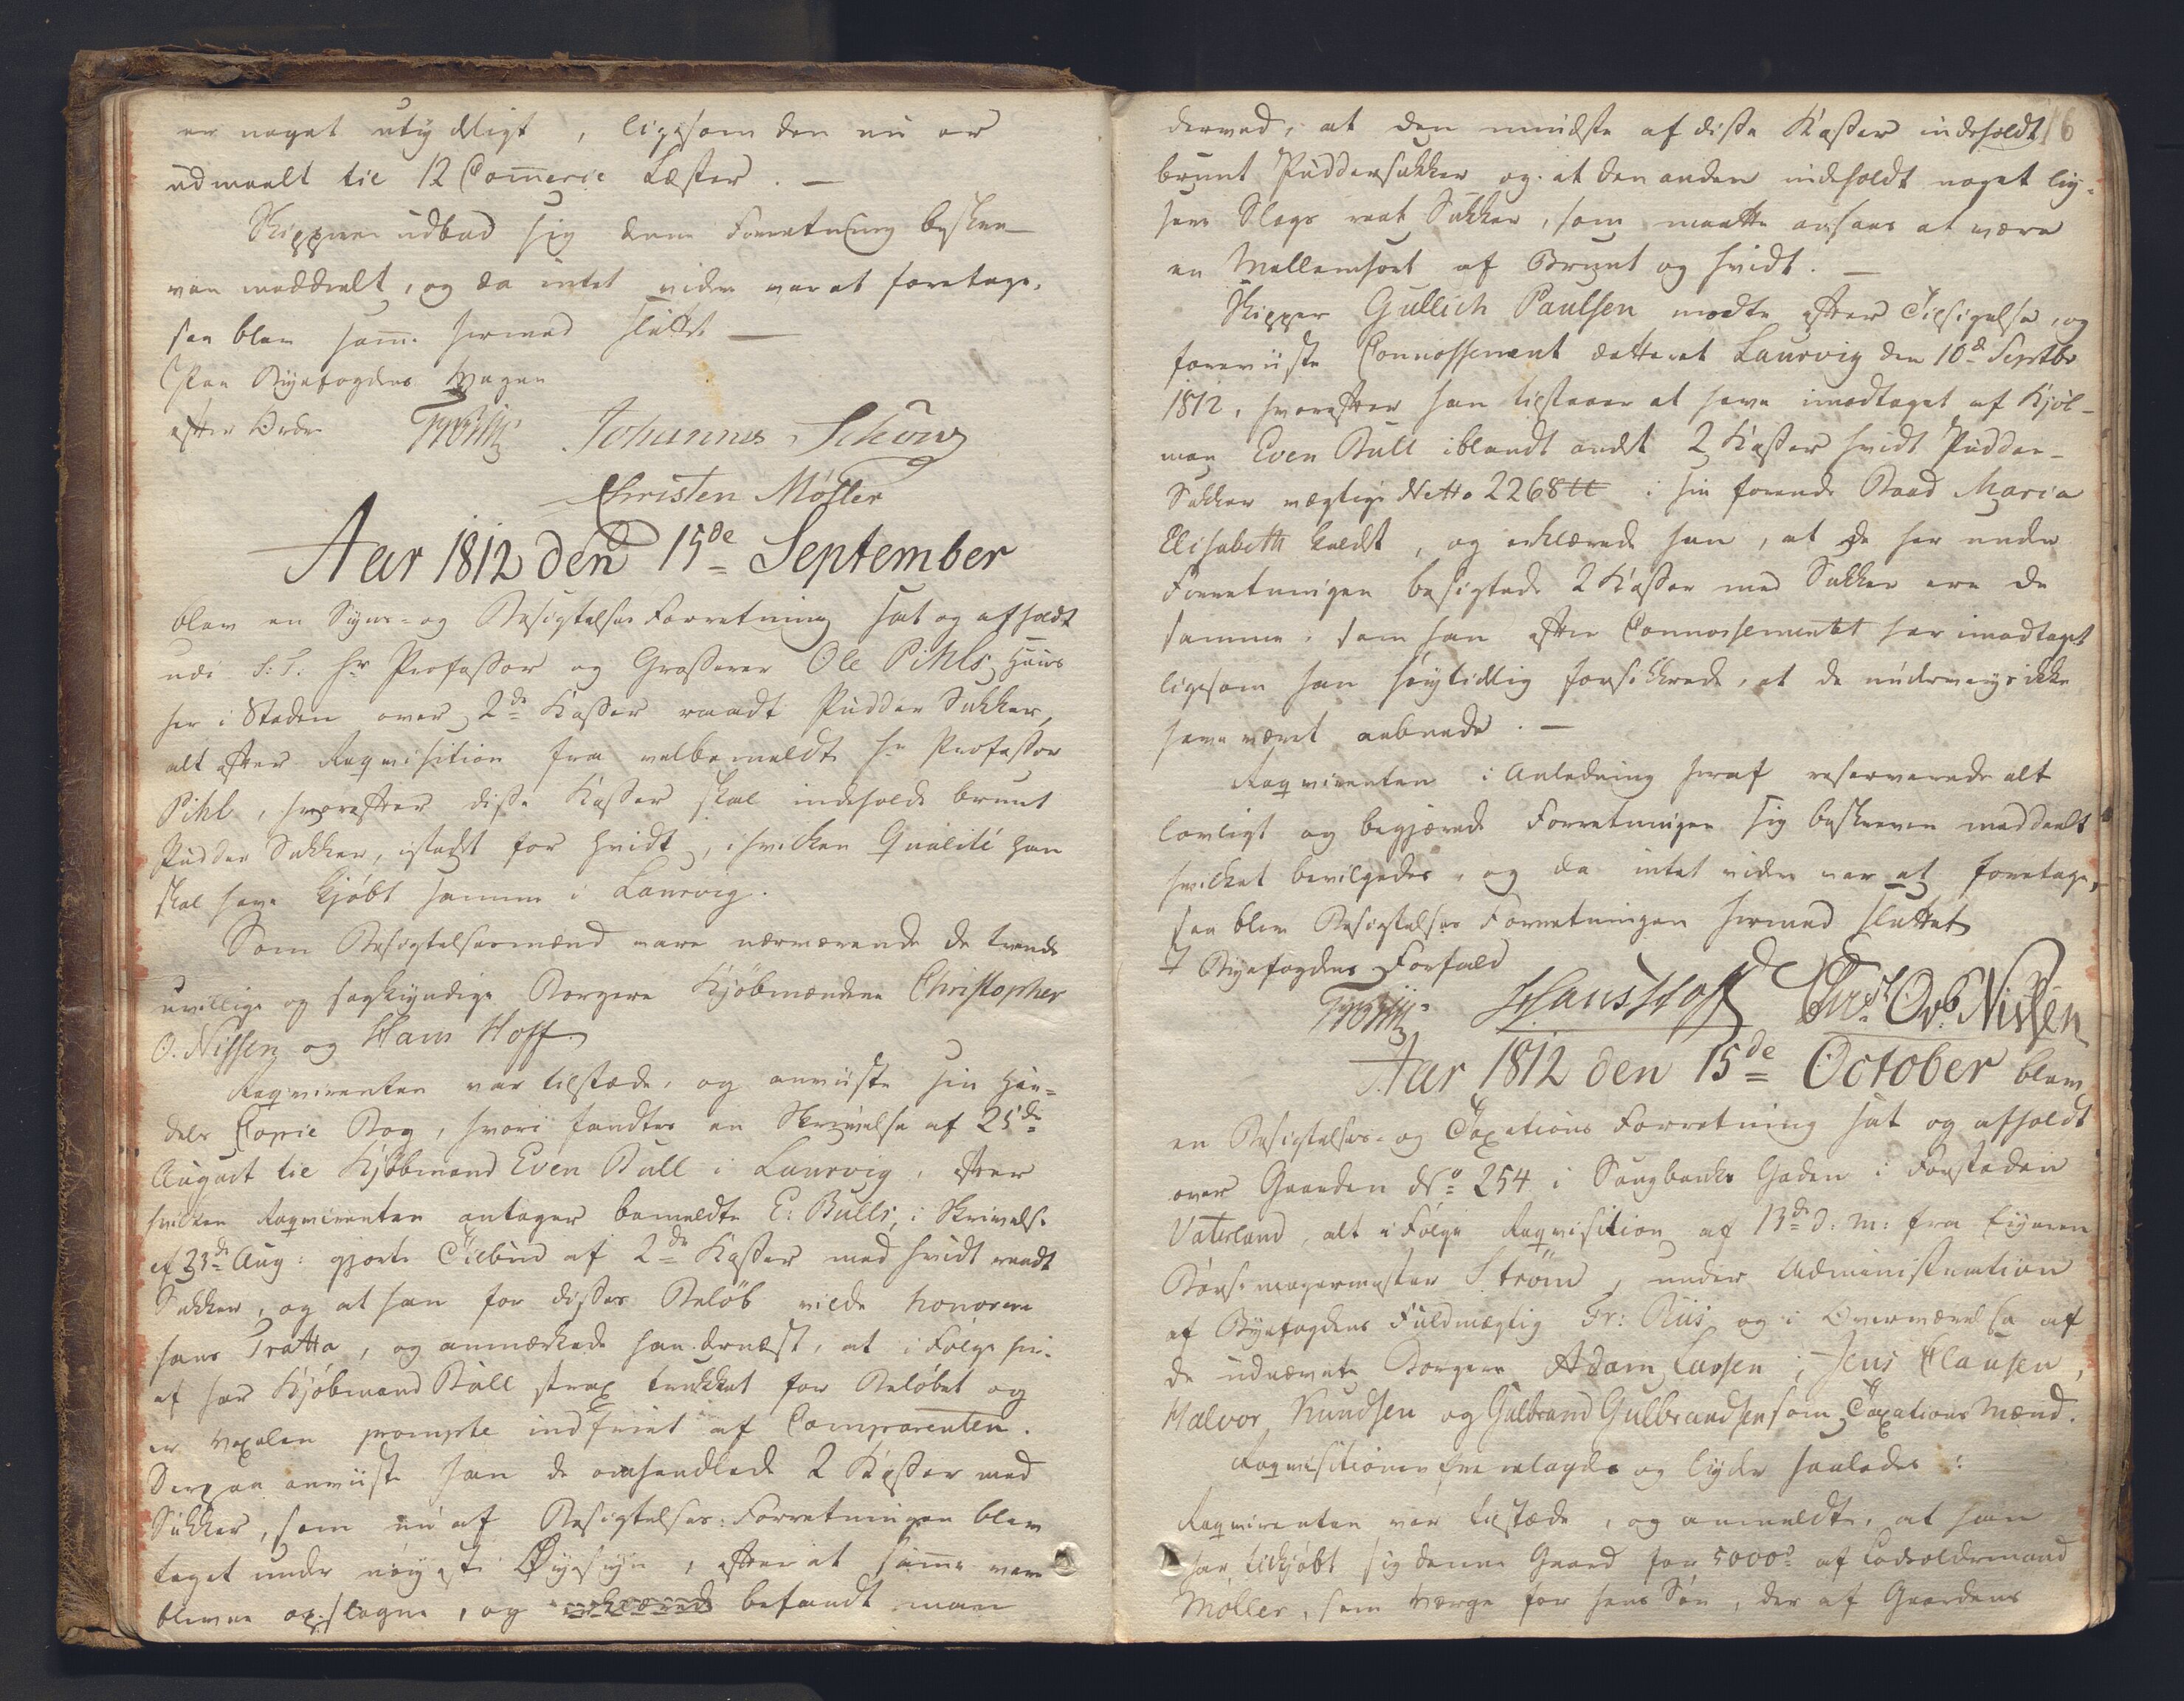 er noget utydeligt, ligesom den nu er
udmaalt til 12 Com̄erce Læster. —
Skipperen udbad sig denne Forretning beskre-
ven meddeelt, og da intet videre var at foretage,
saa blev sam̄e hermed sluttet —
Paa Byefogdens Vegne
efter Ordre
Johannes Schow
Christen Møller
Aar 1812 den 15de September
blev en Syns- og Besigtelses Forretning sat og afholdt
udi S: T. Hr Professor og Grosserer Ole Pihls Huus
her i Staden over 2de Kasser raadt Pudder Sukker,
alt efter Reqvisition fra velbemeldte Hr Professor
Pihl, hvorefter disse Kasser skal indeholde brunt
Pudder Sukker, istedet for hvidt, i hvilken Qvalité han
skal have kjøbt samme i Laurvig.
Som Besigtelsesmænd vare nærværende de tvende
uvillige og sagkyndige Borgere Kjøbmændene Christopher
O. Nissen og Hans Hoff.
Reqvirenten var tilstæde, og anviiste sin Han-
dels Copie Bog, hvori fandtes en Skrivelse af 25de
August til Kjøbmand Even Bull i Laurvig, efter
hvilken Reqvirenten antager bemeldte E: Bulls, i Skrivelse
af 23de Aug: gjorte Tilbud af 2de Kasser med hvidt raadt
Sukker, og at han for disses Beløb vilde honorere
hans Tratta, og anmærkede han dernæst, at i Følge her-
af har Kjøbmand Bull strax trukket for Beløbet og
er Vexelen prompte indfriet af Comparenten.
Derpaa anviiste han de omhandlede 2 Kasser med
Sukker, som nu af Besigtelses-Forretningen blev
taget under nøyeste Øyesyn, efterat samme vare
blevne opslagne, og erklærede befandt man
16
derved, at den mindste af disse Kasser indeholdt
brunt Puddersukker og at den anden indeholdt noget lig-
sam Slags raat Sukker, som maatte ansees at være
en Mellemsort af Brunt og hvidt. —
Skipper Gullich Paulsen mødte efter Tilsigelse, og
foreviiste Connossement datteret Laurvig den 10de Septbr
1812, hvorefter han tilstaaer at have imodtaget af Kjøb-
man Even Bull iblandt andet 2 Kasser hvidt Pudder-
Sukker vægtige Netto 2268 ℔ i sin førende Baad Maria
Elisabeth kaldet, og erklærede han, at de her under
Forretningen besigtede 2 Kasser med Sukker ere de
samme, som han efter Connossementet har imodtaget
ligesom han høytidelig forsikkrede, at de underveys ikke
have været aabnede. —
Reqvirenten i Anledning heraf reserverede alt
lovligt og begjærede Forretningen sig beskreven meddeelt
hvilket bevilgedes, og da intet videre var at foretage,
saa blev Besigtelses Forretningen hermed sluttet
I Byefogdens Forfald
Hans Hoff Chr. Ovb Nissen
Aar 1812 den 15de October blev
en Besigtelses- og Taxations Forretning sat og afholdt
over Gaarden No 254 i Saugbanks Gaden i Forstaden
Vaterland, alt i Følge Reqvisition af 13de d: M: fra Eyeren
Bøssemagermester Strøm, under Administration
af Byefogdens Fuldmægtig Fr: Riis og i Overværelse af
de udnævnte Borgere Adam Lassen, Jens Clausen,
Halvor Knudsen og Gulbrand Gulbrandsen som Taxations Mænd.
Reqvisitionen fremlagdes og lyder saaledes:
Reqvirenten var tilstæde, og anmeldte, at han
har tilkjøbt sig denne Gaard for 5000 af
Møller, som Værge for hans Søn, der af Gaardens